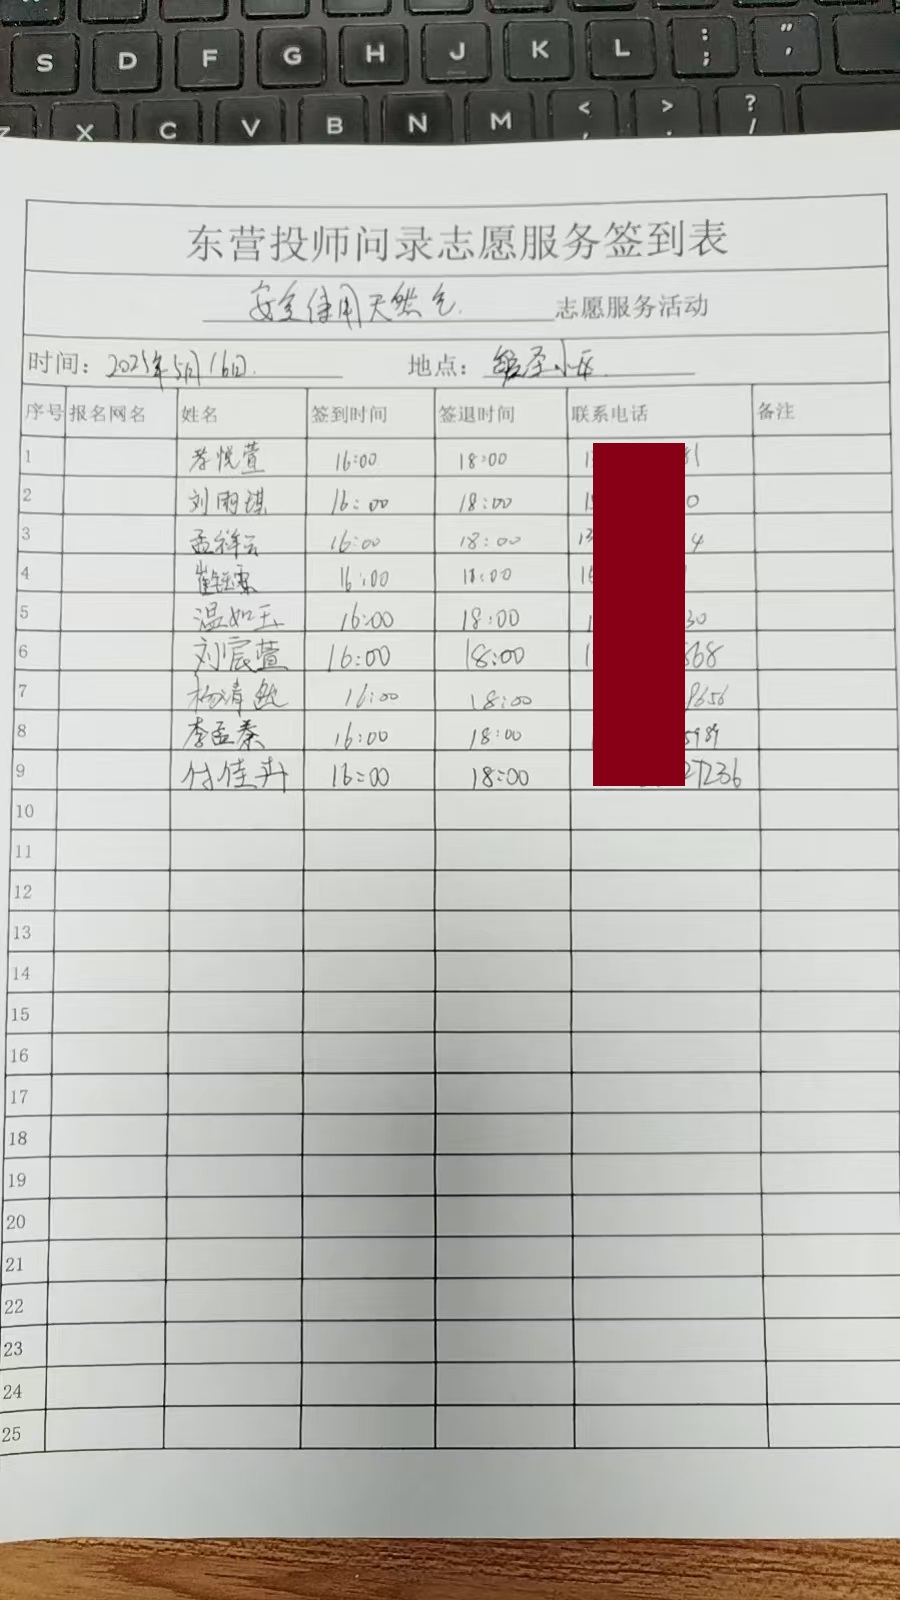 S D F G H J K L : ; " '
Z X C V B N M < , > . ? /
东营投师问录志愿服务签到表
安全使用天然气 志愿服务活动
时间: 2025年5月16日. 地点: 小区
序号 报名网名 姓名 签到时间 签退时间 联系电话 备注
1 悦萱 16:00 18:00
2 刘雨琪 16:00 18:00
3 孟祥云 16:00 18:00
4 崔钰霖 16:00 18:00
5 温如玉 16:00 18:00 30
6 刘宸萱 16:00 18:00 868
7 杨清 16:00 18:00 9656
8 李孟蓁 16:00 18:00 5989
9 付佳卉 16:00 18:00 27236
10
11
12
13
14
15
16
17
18
19
20
21
22
23
24
25